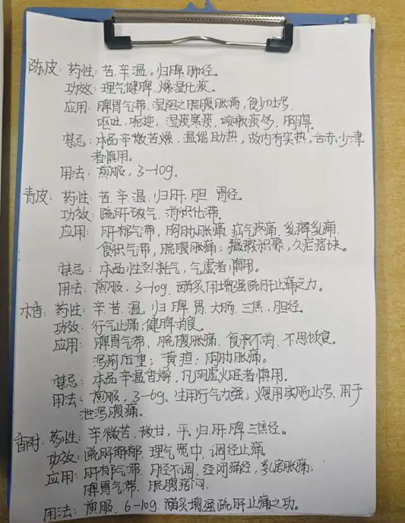 陈皮：药性：苦、辛、温。归脾、肺经。
功效：理气健脾，燥湿化痰。
应用：脾胃气滞、湿阻之脘腹胀满，食少吐泻
呕吐、呃逆，湿痰寒痰，咳嗽痰多，胸痹。
禁忌：本品辛散苦燥，温能助热，故内有实热，舌赤少津
者慎用。
用法：煎服，3-10g。
青皮：药性：苦、辛、温，归肝、胆、胃经。
功效：疏肝破气，消积化滞。
应用：肝郁气滞，胸胁胀痛，疝气疼痛，乳癖乳痈
食积气滞，脘腹胀痛；癥瘕积聚，久疟痞块。
禁忌：本品性烈耗气，气虚者慎用。
用法：煎服，3-10g，醋炙用增强疏肝止痛之力。
木香：药性：辛、苦、温，归脾、胃、大肠、三焦、胆经。
功效：行气止痛，健脾消食。
应用：脾胃气滞，脘腹胀痛，食积不消，不思饮食。
泻痢后重；黄疸；胸胁胀痛。
禁忌：本品辛温香燥，凡阴虚火旺者慎用。
用法：煎服，3-6g，生用行气力强；煨用实肠止泻，用于
泄泻腹痛。
香附：药性：辛、微苦、微甘、平，归肝、脾、三焦经。
功效：疏肝解郁，理气宽中，调经止痛。
应用：肝郁气滞，月经不调，经闭痛经，乳房胀痛；
脾胃气滞，脘腹痞闷
用法：煎服，6-10g，醋炙增强疏肝止痛之功。